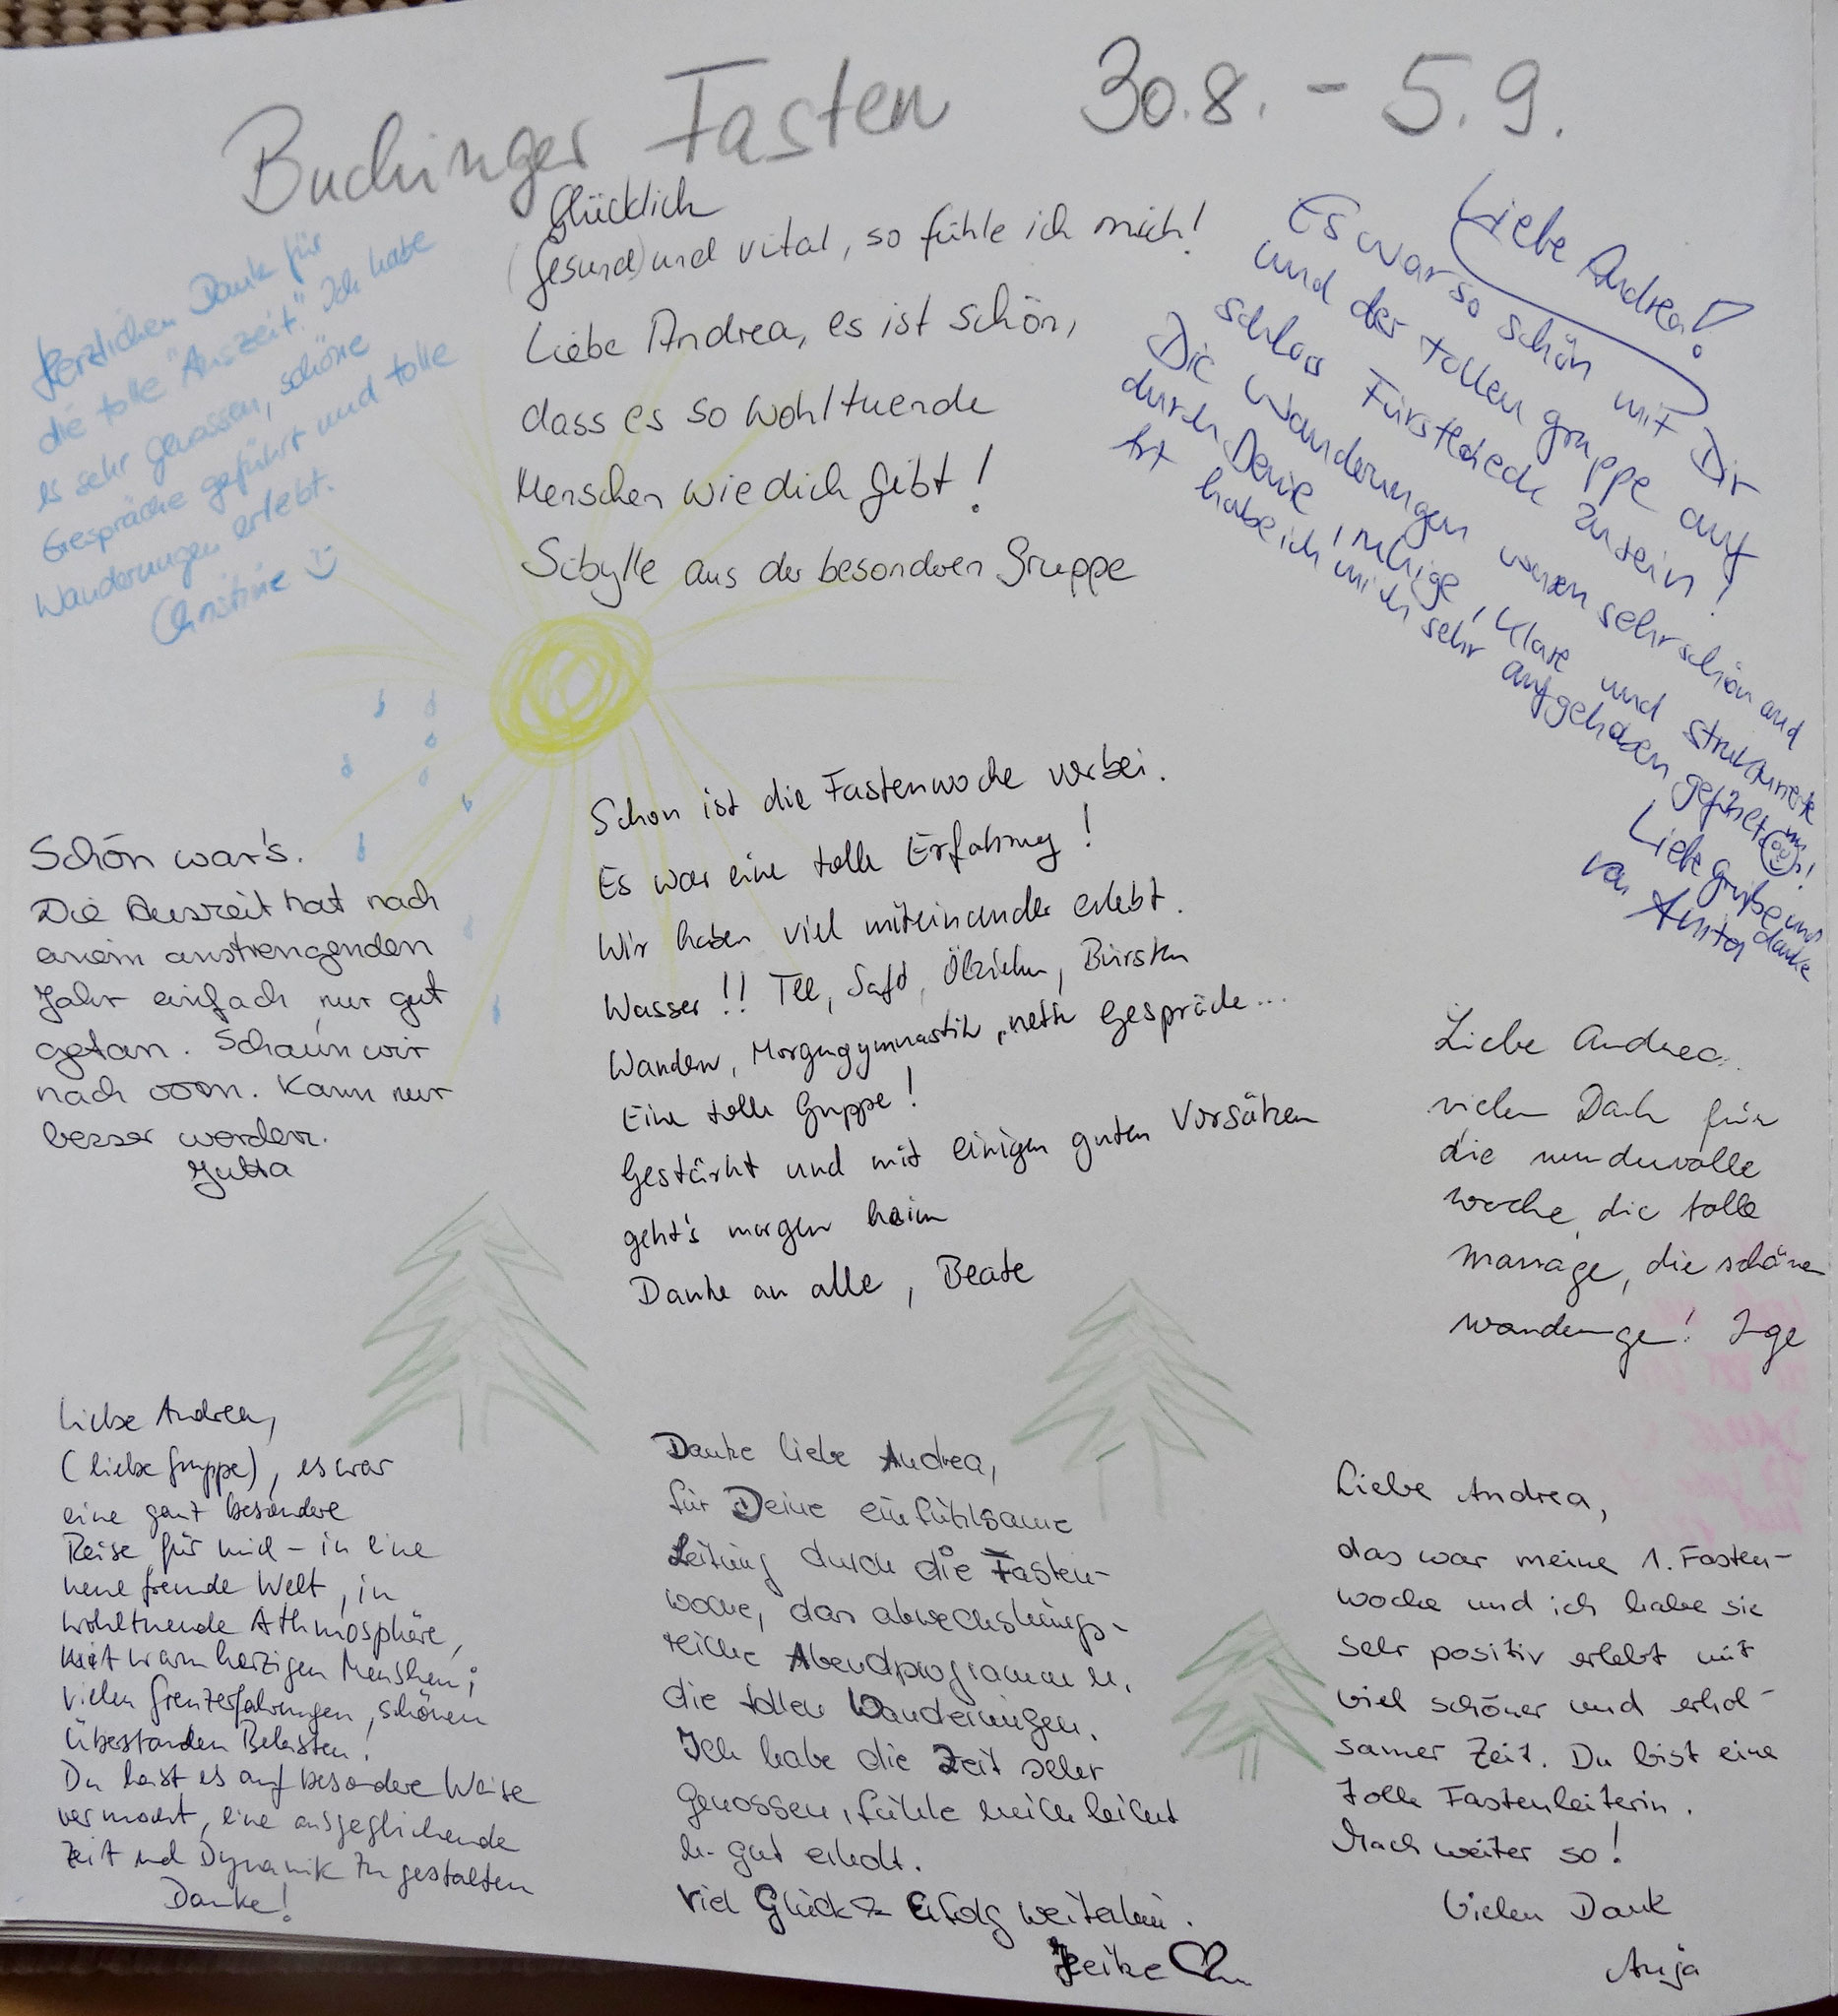 Buchinger Fasten 30.8. - 5.9.
Herzlichen Dank für
die tolle "Auszeit". Ich habe
es sehr genossen, schöne
Gespräche geführt und tolle
Wanderungen erlebt.
Christine
Glücklich
(Gesund) und vital, so fühle ich mich!
Liebe Andrea, es ist schön,
dass es so wohltuende
Menschen wie dich gibt!
Sibylle aus der besonderen Gruppe
Liebe Andrea!
Es war so schön mit Dir
und der tollen Gruppe auf
Schloss Fürsteneck zu sein!
Die Wanderungen waren sehr schön und
durch Deine ruhige, klare und strukturierte
Art habe ich mich sehr aufgehoben gefühlt!
Liebe Grüße und
von Anita danke
Schön war's.
Die Auszeit hat nach
einem anstrengenden
Jahr einfach nur gut
getan. Schau'n wir
nach vorn. Kann nur
besser werden.
Jutta
Schon ist die Fastenwoche vorbei.
Es war eine tolle Erfahrung!
Wir haben viel miteinander erlebt.
Wasser!! Tee, Saft, Ölziehn, Bürsten
Wandern, Morgengymnastik, nette Gespräche...
Eine tolle Gruppe!
Gestärkt und mit einigen guten Vorsätzen
geht's morgen heim
Danke an alle, Beate
Liebe Andrea.
vielen Dank für
die wundervolle
Woche, die tolle
Massage, die schöne
Wanderunge! Inge
Liebe Andrea,
(liebe Gruppe), es war
eine ganz besondere
Reise für mich - in eine
neue fremde Welt, in
wohltuende Athmosphäre,
mit warmherzigen Menschen;
vielen Grenzerfahrungen, schönen
überstanden
Du hast es auf besondere Weise
vermocht, eine ausgeglichende
Zeit und Dynamik zu gestalten
Danke!
Danke liebe Andrea,
für Deine einfühlsame
Leitung durch die Fasten-
woche, das abwechslungs-
reiche Abendprogramm u.
die tollen Wanderungen.
Ich habe die Zeit sehr
genossen, fühle mich leicht
u. gut erholt.
Viel Glück & Erfolg weiterhin.
Heike
Liebe Andrea,
das war meine 1. Fasten-
woche und ich habe sie
sehr positiv erlebt mit
viel schöner und erhol-
samer Zeit. Du bist eine
tolle Fastenleiterin.
Mach weiter so!
Vielen Dank
Anja